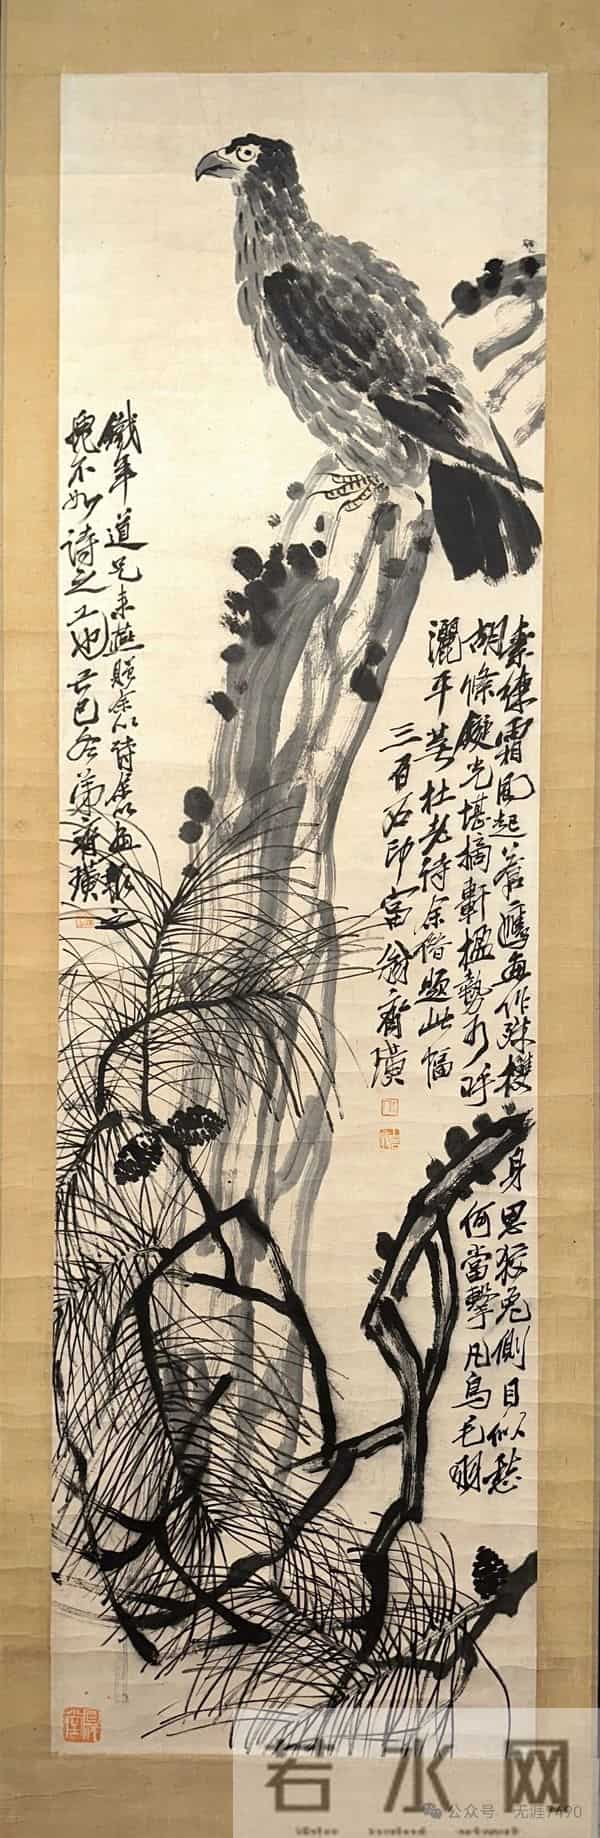 素練霜風起蒼鷹畫作殊㩳身思狡兔側目似愁
胡條鏇光堪摘軒楹勢可呼何當擊凡鳥毛羽
灑平蕪杜老詩余借題此幅
三百石印富翁齊璜
鐵年道兄來燕贈余以詩余以畫報之
愧不如詩之工也己巳冬弟齊璜
若水网
公众号·无涯7490